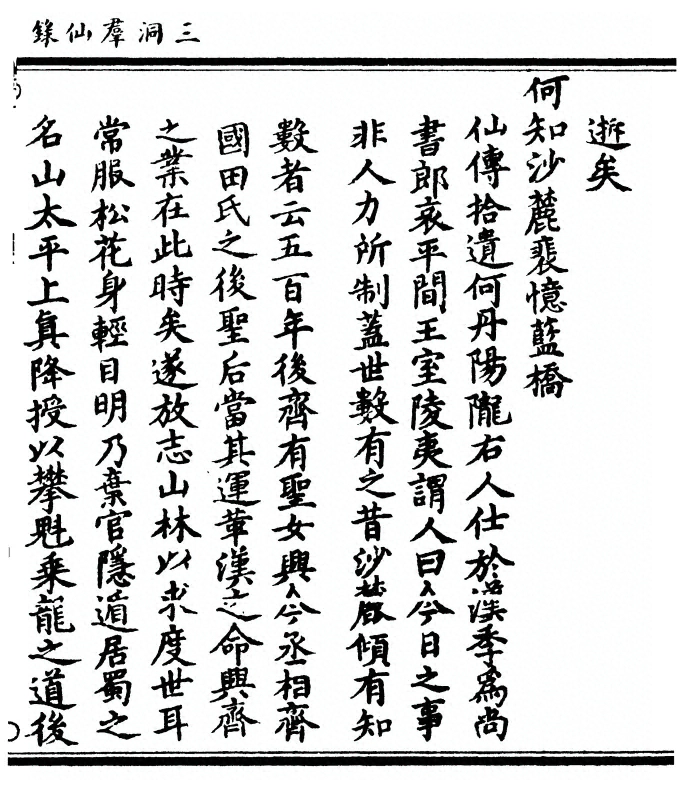 三洞羣仙錄
逝矣
何知沙麓裴憶藍橋
仙傳拾遺何丹陽隴右人仕於漢季爲尚
書郎哀平間王室陵夷謂人曰今日之事
非人力所制蓋世數有之昔沙麓傾有知
數者云五百年後齊有聖女興今丞相齊
國田氏之後聖后當其運革漢之命興齊
之業在此時矣遂放志山林以求度世耳
常服松花身輕目明乃棄官隱遁居蜀之
名山太平上眞降授以攀魁乘龍之道後